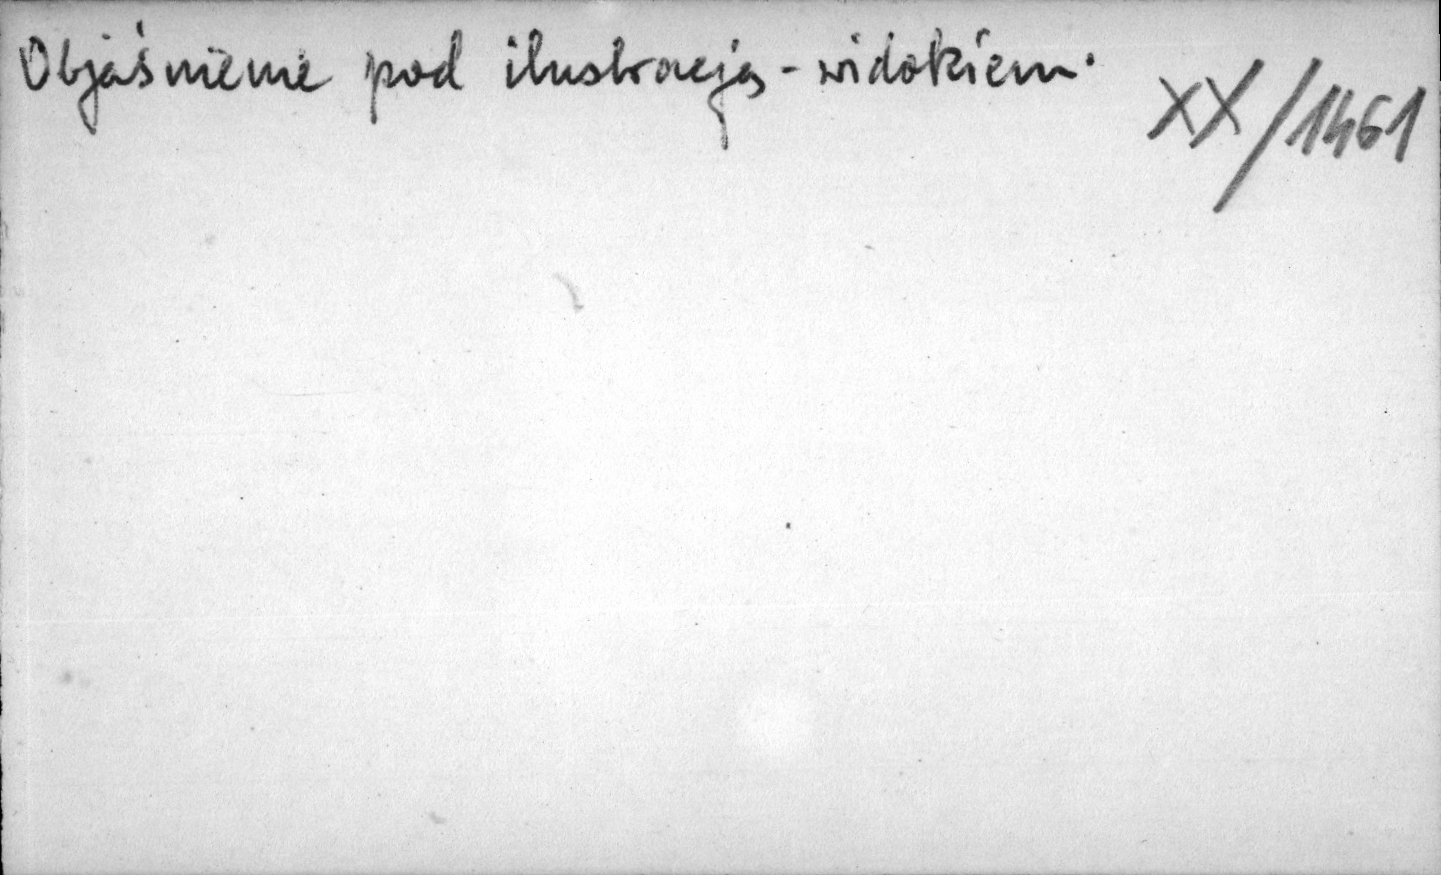 Objaśnienie pod ilustracją - widokiem.
XX/1461